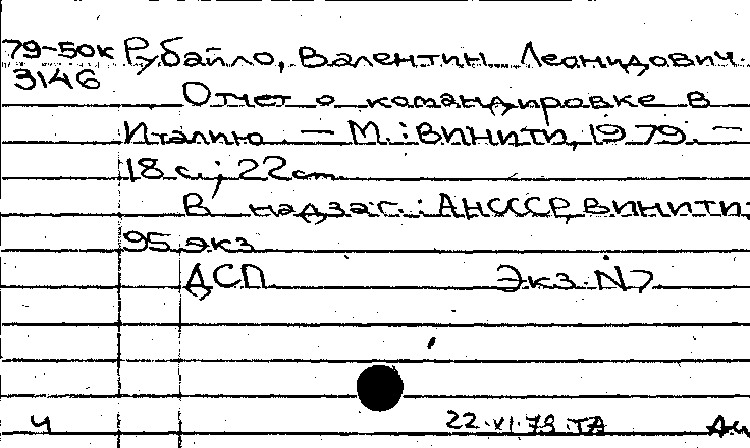 79-50к Рубайло, Валентин Леонидович.
3146
Отчет о командировке в
Италию. — М.: ВИНИТИ, 1979. —
18 с.; 22 см.
В надзаг.: АН СССР, ВИНИТИ.
95 экз.
ДСП Экз. N 7
ч 22.VI.79 ТА